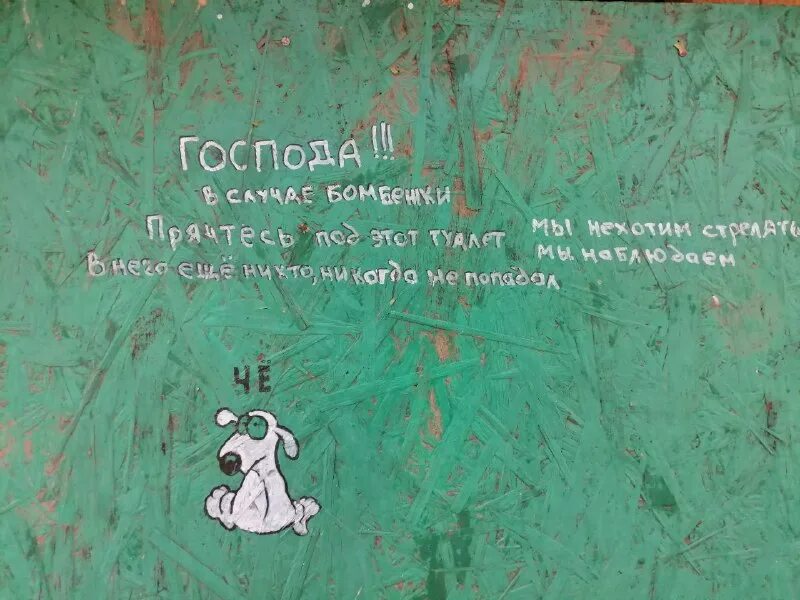 ГОСПОДА!!!
В СЛУЧАЕ БОМБЕШКИ
Прячтесь под этот туалет
В него ещё никто, никогда не попадал
МЫ нехотим стрелять
мы наблюдаем
ЧЁ